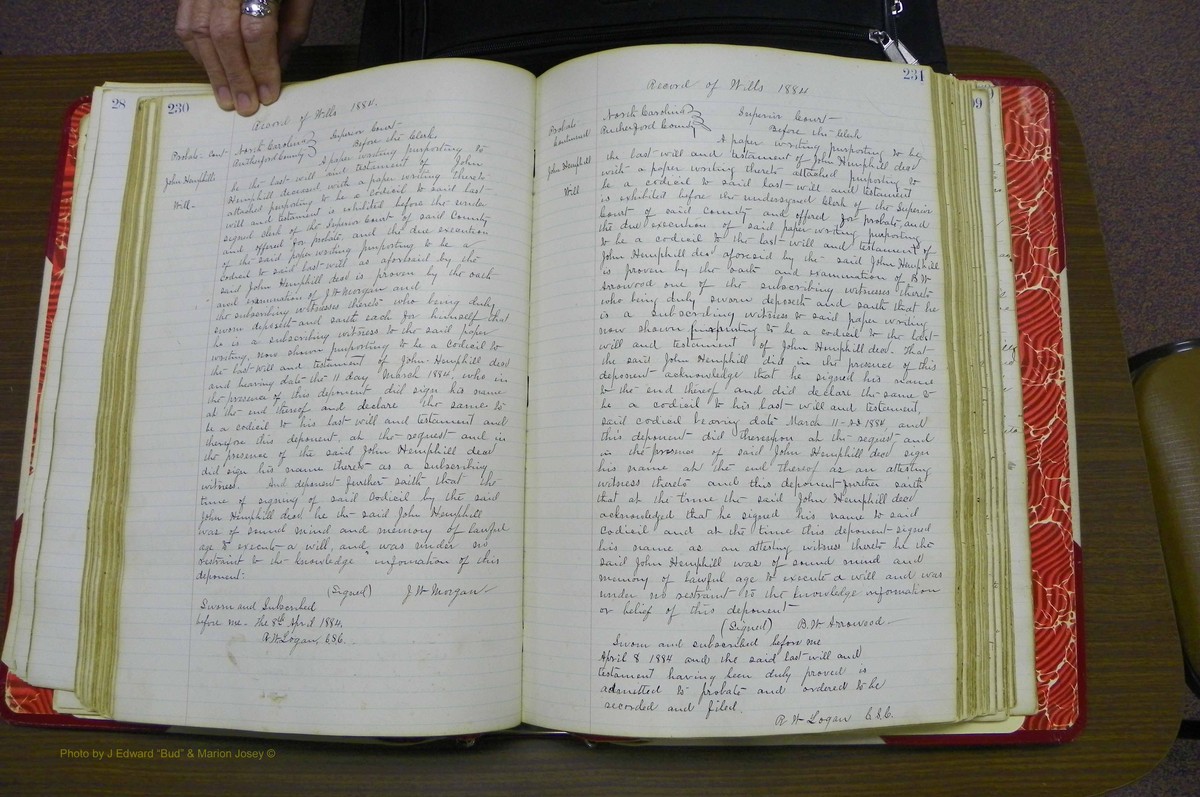 28
230
Record of Wills 1884.
Probate - cont
North Carolina
Rutherford County
Superior Court
Before the Clerk.
John Hemphills
Will -
A paper writing purporting to
be the last will and testament of John
Hemphill deceased with a paper writing thereto
attached purporting to be a codicil to said last
will and testament is exhibited before the under
signed clerk of the Superior Court of said County
and offered for probate, and the due execution
of the said paper writing purporting to be a
Codicil to said last will as aforesaid by the
said John Hemphill decd is proven by the oath
and examination of J. W. Morgan and
the subscribing witnesses thereto who being duly
sworn deposeth and saith each for himself that
he is a subscribing witness to the said paper
writing, now shown purporting to be a Codicil to
the last will and testament of John Hemphill decd
and bearing date the 11 day March 1884, who in
the presence of this deponent did sign his name
at the end thereof and declare the same to
be a codicil to his last will and testament and
therefore this deponent, at the request and in
the presence of the said John Hemphill decd
did sign his name thereto as a subscribing
witness. And deponent further saith that the
time of signing of said Codicil by the said
John Hemphill decd he the said John Hemphill
was of sound mind and memory of lawful
age to execute a will, and was under no
restraint to the knowledge information of this
deponent.
(Signed) J W Morgan
Sworn and Subscribed
before me - the 8th April 1884.
R. W. Logan, C.S.C.
231
Record of Wills 1884
Probate
Continued
North Carolina
Rutherford County
Superior Court
Before the Clerk
John Hemphill
Will
A paper writing purporting to be
the last will and testament of John Hemphill decd
with a paper writing thereto attached purporting to
be a codicil to said last will and testament
is exhibited before the undersigned Clerk of the Superior
Court of said County and offered for probate, and
the due execution of said paper writing purporting
to be a codicil to the last will and testament of
John Hemphill decd aforesaid by the said John Hemphill
is proven by the oath and examination of B. W
Arrowood one of the subscribing witnesses thereto
who being duly sworn deposeth and saith that he
is a subscribing witness to said paper writing
now shown purporting to be a codicil to the last
will and testament of John Hemphill decd. That
the said John Hemphill did in the presence of this
deponent acknowledge that he signed his name
to the end thereof and did declare the same to
be a codicil to his last will and testament,
said codicil bearing date March 11 1884, and
this deponent did thereupon at the request and
in the presence of said John Hemphill decd sign
his name at the end thereof as an attesting
witness thereto and this deponent further saith
that at the time the said John Hemphill decd
acknowledged that he signed his name to said
Codicil and at the time this deponent signed
his name as an attesting witness thereto he the
said John Hemphill was of sound mind and
memory of lawful age to execute a will and was
under no restraint to the knowledge information
or belief of this deponent
(Signed) B. W Arrowood
Sworn and subscribed before me
April 8 1884 and the said last will and
testament having been duly proved is
admitted to probate and ordered to be
recorded and filed.
R W Logan C.S.C.
Photo by J Edward "Bud" & Marion Josey ©